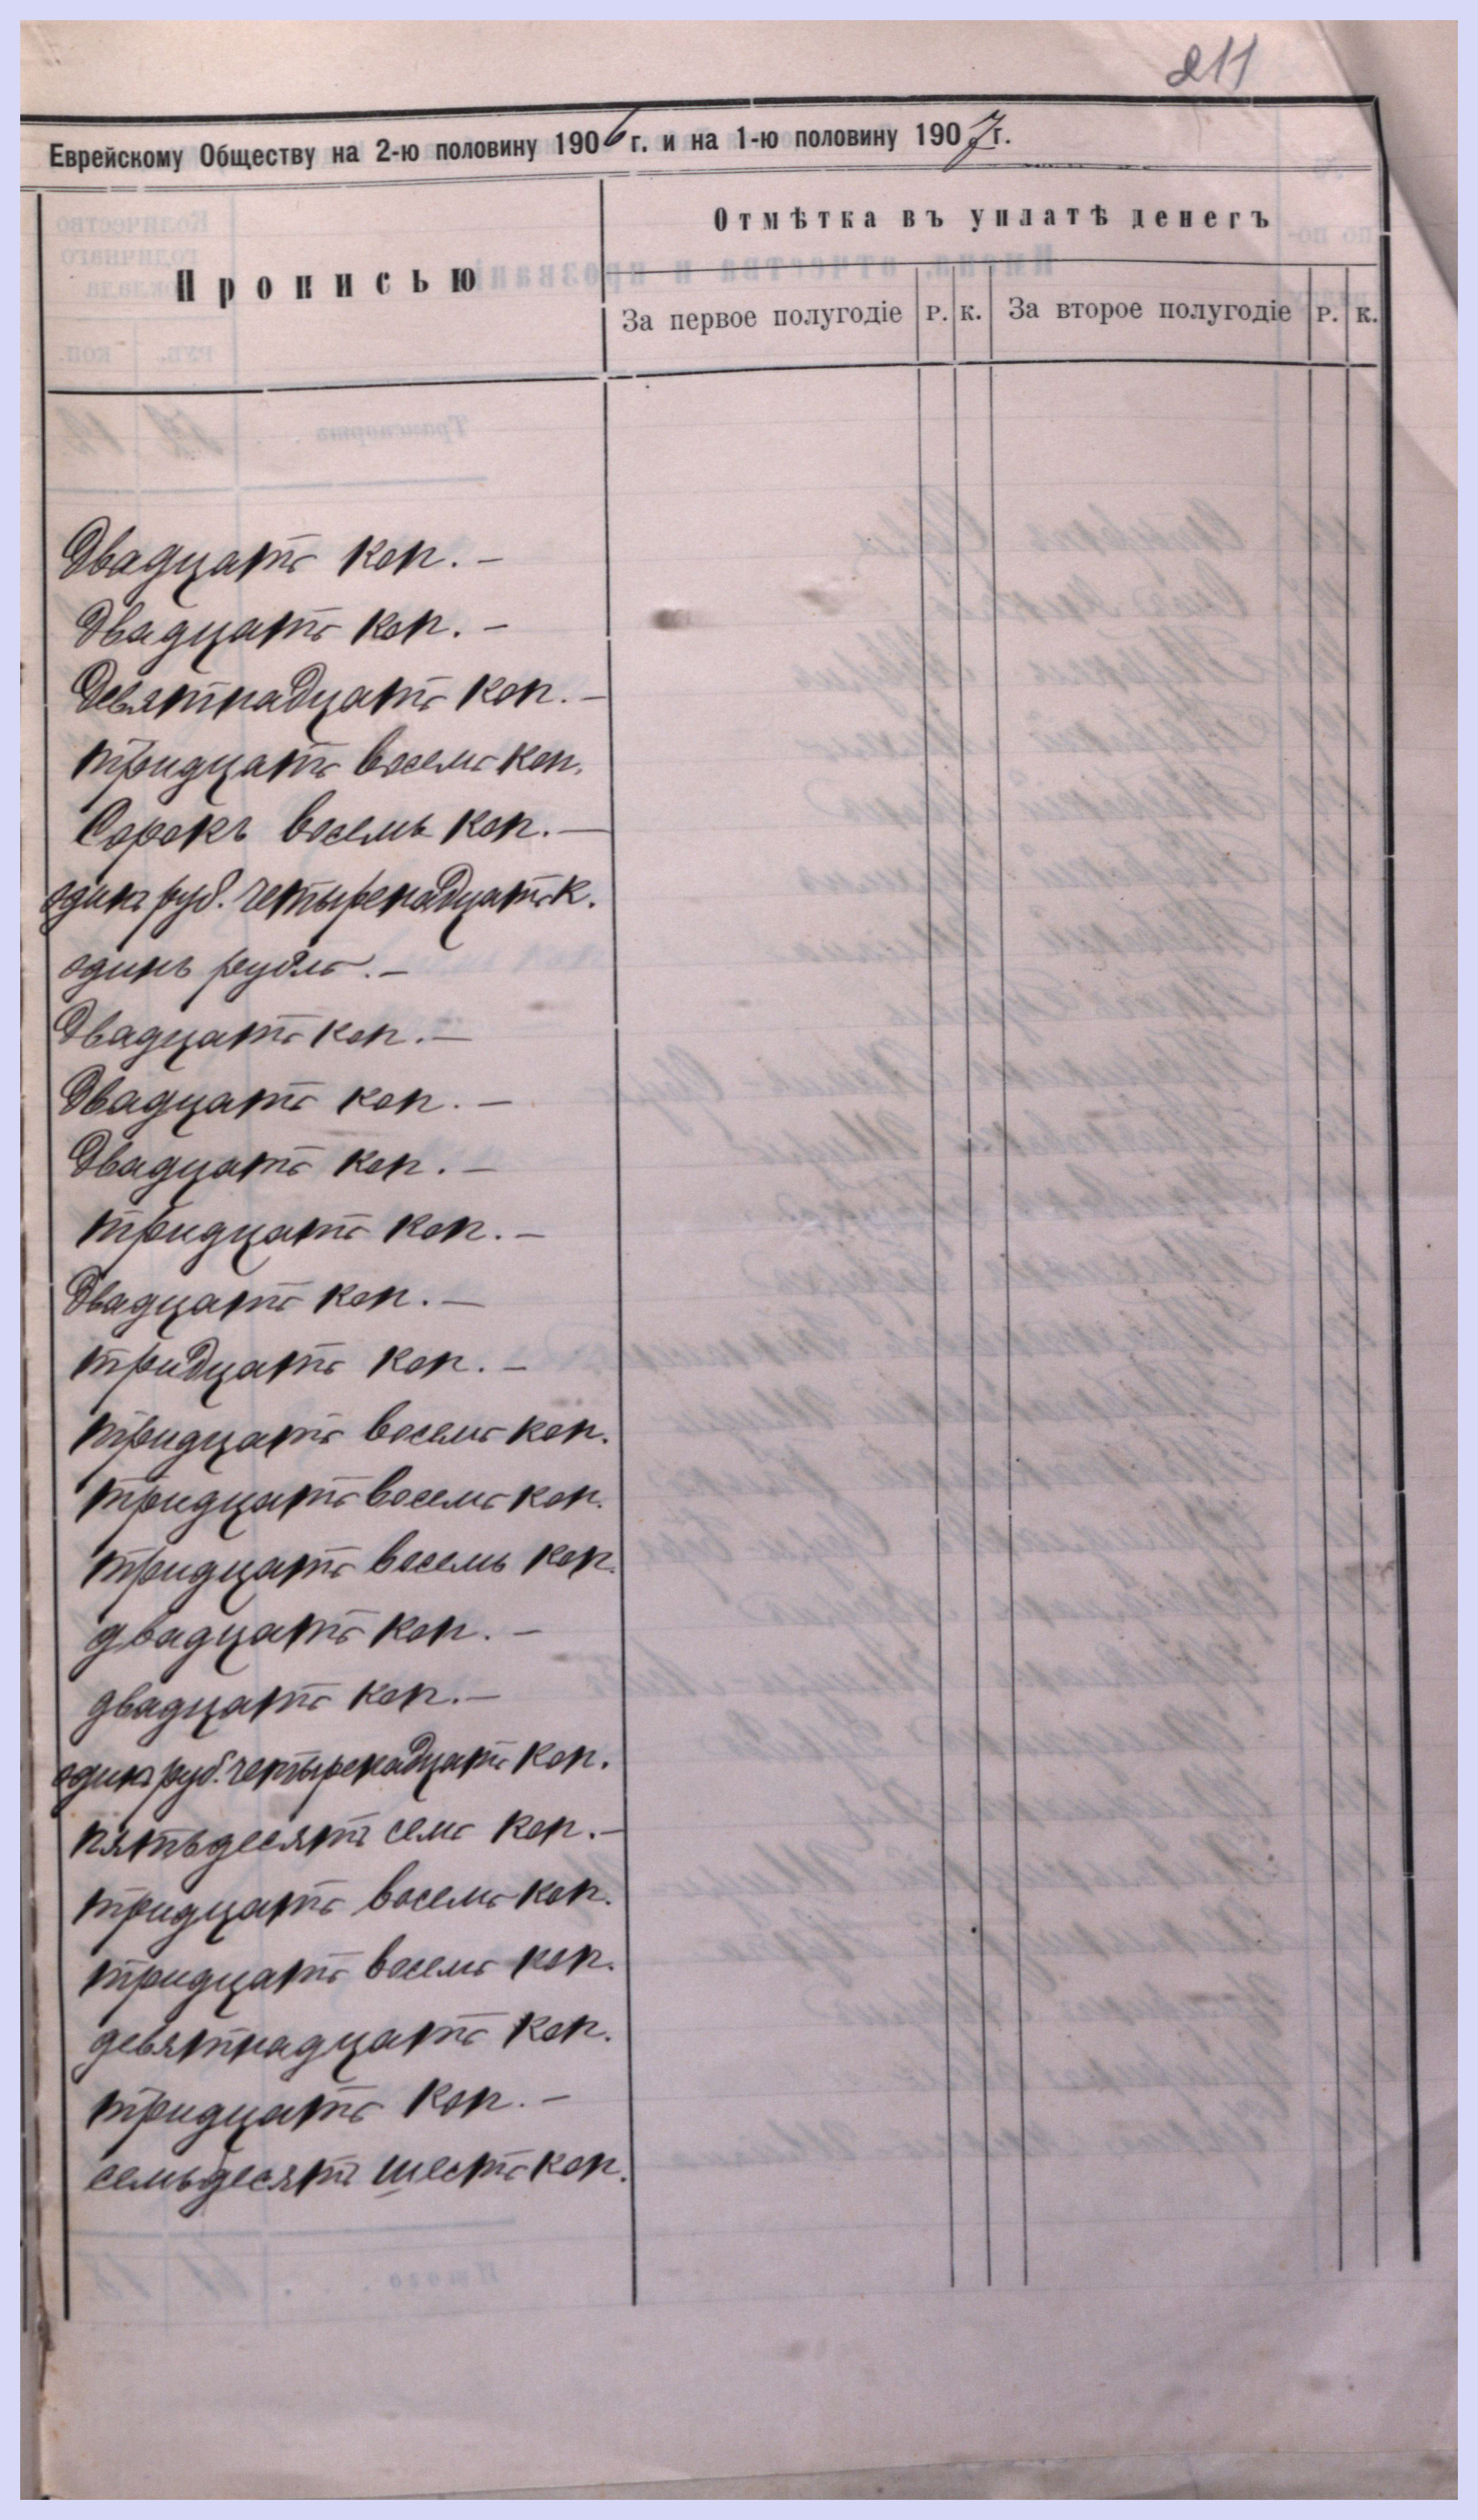 211
Еврейскому Обществу на 2-ю половину 1906 г. и на 1-ю половину 1907 г.
Прописью
Отмѣтка въ уплатѣ денегъ
За первое полугодіе Р. К. За второе полугодіе Р. К.
Двадцать коп. –
Двадцать коп. –
Девятнадцать коп. –
тридцать восемь коп.
Сорокъ восемь коп. –
одинъ руб. четырнадцать к.
одинъ рубль. –
Двадцать коп. –
Двадцать коп. –
Двадцать коп. –
тридцать коп. –
Двадцать коп. –
тридцать коп. –
тридцать восемь коп.
тридцать восемь коп.
тридцать восемь коп.
двадцать коп. –
двадцать коп. –
одинъ руб. четырнадцать коп.
пятьдесятъ семь коп. –
тридцать восемь коп.
тридцать восемь коп.
девятнадцать коп.
тридцать коп. –
семьдесятъ шесть коп.